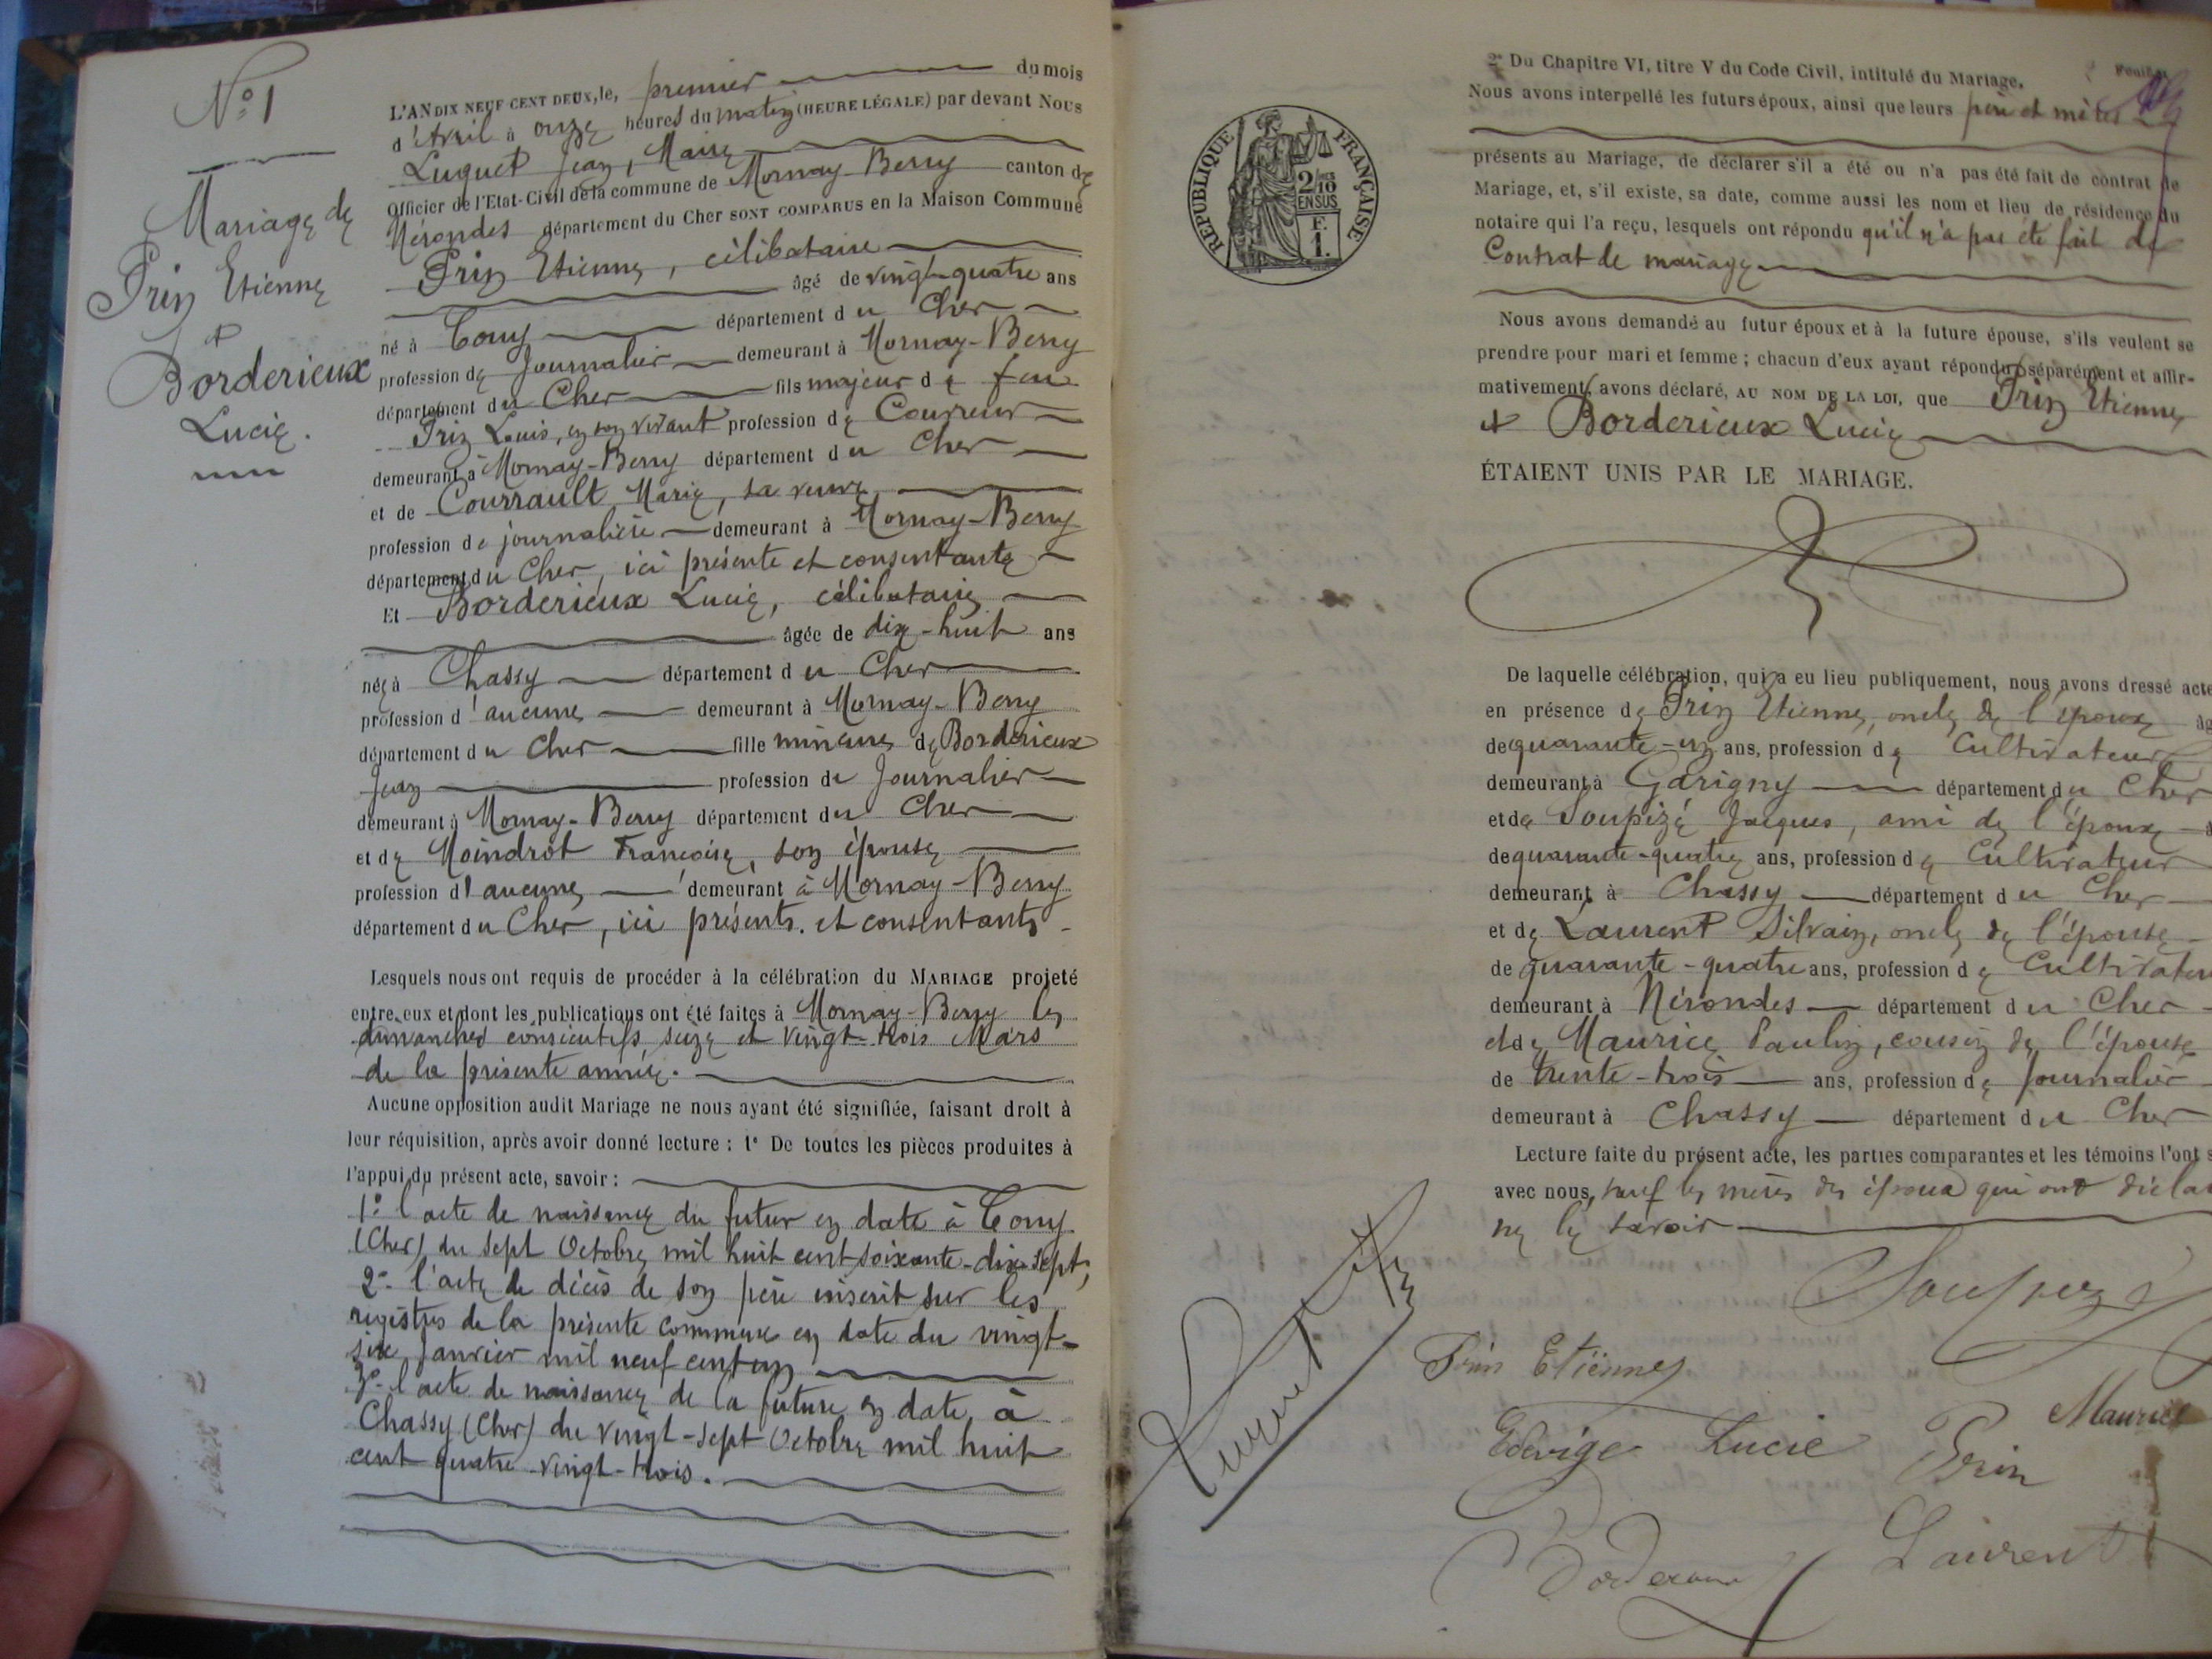 N° 1
Mariage de
Prin Etienne
et
Borderieux
Lucie.
L'AN DIX NEUF CENT DEUX, le, premier du mois
d'Avril à onze heures du matin (HEURE LÉGALE) par devant Nous
Luquet Jean, Maire
Officier de l'Etat-Civil de la commune de Mornay-Berry canton de
Nérondes département du Cher SONT COMPARUS en la Maison Commune
Prin Etienne, célibataire
âgé de vingt-quatre ans
né à Couy département du Cher
profession de Journalier demeurant à Mornay-Berry
département du Cher fils majeur de feu
Prin Louis, en son vivant profession de Couvreur
demeurant à Mornay-Berry département du Cher
et de Courrault Marie, sa veuve
profession de journalière demeurant à Mornay-Berry
département du Cher, ici présente et consentante
Et Borderieux Lucie, célibataire
âgée de dix-huit ans
née à Chassy département du Cher
profession d'aucune demeurant à Mornay-Berry
département du Cher fille mineure de Borderieux
Jean profession de Journalier
demeurant à Mornay-Berry département du Cher
et de Moindrot Françoise, son épouse
profession d'aucune demeurant à Mornay-Berry
département du Cher, ici présents et consentants
Lesquels nous ont requis de procéder à la célébration du MARIAGE projeté
entre eux et dont les publications ont été faites à Mornay-Berry les
dimanches consécutifs seize et vingt-trois Mars
de la présente année.
Aucune opposition audit Mariage ne nous ayant été signifiée, faisant droit à
leur réquisition, après avoir donné lecture : 1° De toutes les pièces produites à
l'appui du présent acte, savoir :
1° l'acte de naissance du futur en date à Couy
(Cher) du sept Octobre mil huit cent soixante-dix-sept;
2° l'acte de décès de son père inscrit sur les
registres de la présente commune en date du vingt-
six Janvier mil neuf cent un
3° l'acte de naissance de la future en date à
Chassy (Cher) du vingt-sept Octobre mil huit
cent quatre-vingt-trois.
RÉPUBLIQUE FRANÇAISE
2/10
EN SUS
F.
1.
Feuillet
2° Du Chapitre VI, titre V du Code Civil, intitulé du Mariage.
Nous avons interpellé les futurs époux, ainsi que leurs père et mères
présents au Mariage, de déclarer s'il a été ou n'a pas été fait de contrat de
Mariage, et, s'il existe, sa date, comme aussi les nom et lieu de résidence du
notaire qui l'a reçu, lesquels ont répondu qu'il n'a pas été fait de
Contrat de mariage
Nous avons demandé au futur époux et à la future épouse, s'ils veulent se
prendre pour mari et femme ; chacun d'eux ayant répondu séparément et affir-
mativement, avons déclaré, AU NOM DE LA LOI, que Prin Etienne
et Borderieux Lucie
ÉTAIENT UNIS PAR LE MARIAGE.
De laquelle célébration, qui a eu lieu publiquement, nous avons dressé acte
en présence de Prin Etienne, oncle de l'époux âg
de quarante-un ans, profession de Cultivateur
demeurant à Garigny département du Cher
et de Soupizé Jacques, ami de l'époux
de quarante-quatre ans, profession de Cultivateur
demeurant à Chassy département du Cher
et de Laurent Silvain, oncle de l'épouse
de quarante-quatre ans, profession de Cultivateur
demeurant à Nérondes département du Cher
et de Maurice Paulin, cousin de l'épouse
de trente-trois ans, profession de Journalier
demeurant à Chassy département du Cher
Lecture faite du présent acte, les parties comparantes et les témoins l'ont s
avec nous, sauf les mères des époux qui ont déclar
ne le savoir
Soupizé
Luquet
Prin Etienne
Maurice
Edwige Lucie Prin
Borderieux Laurent